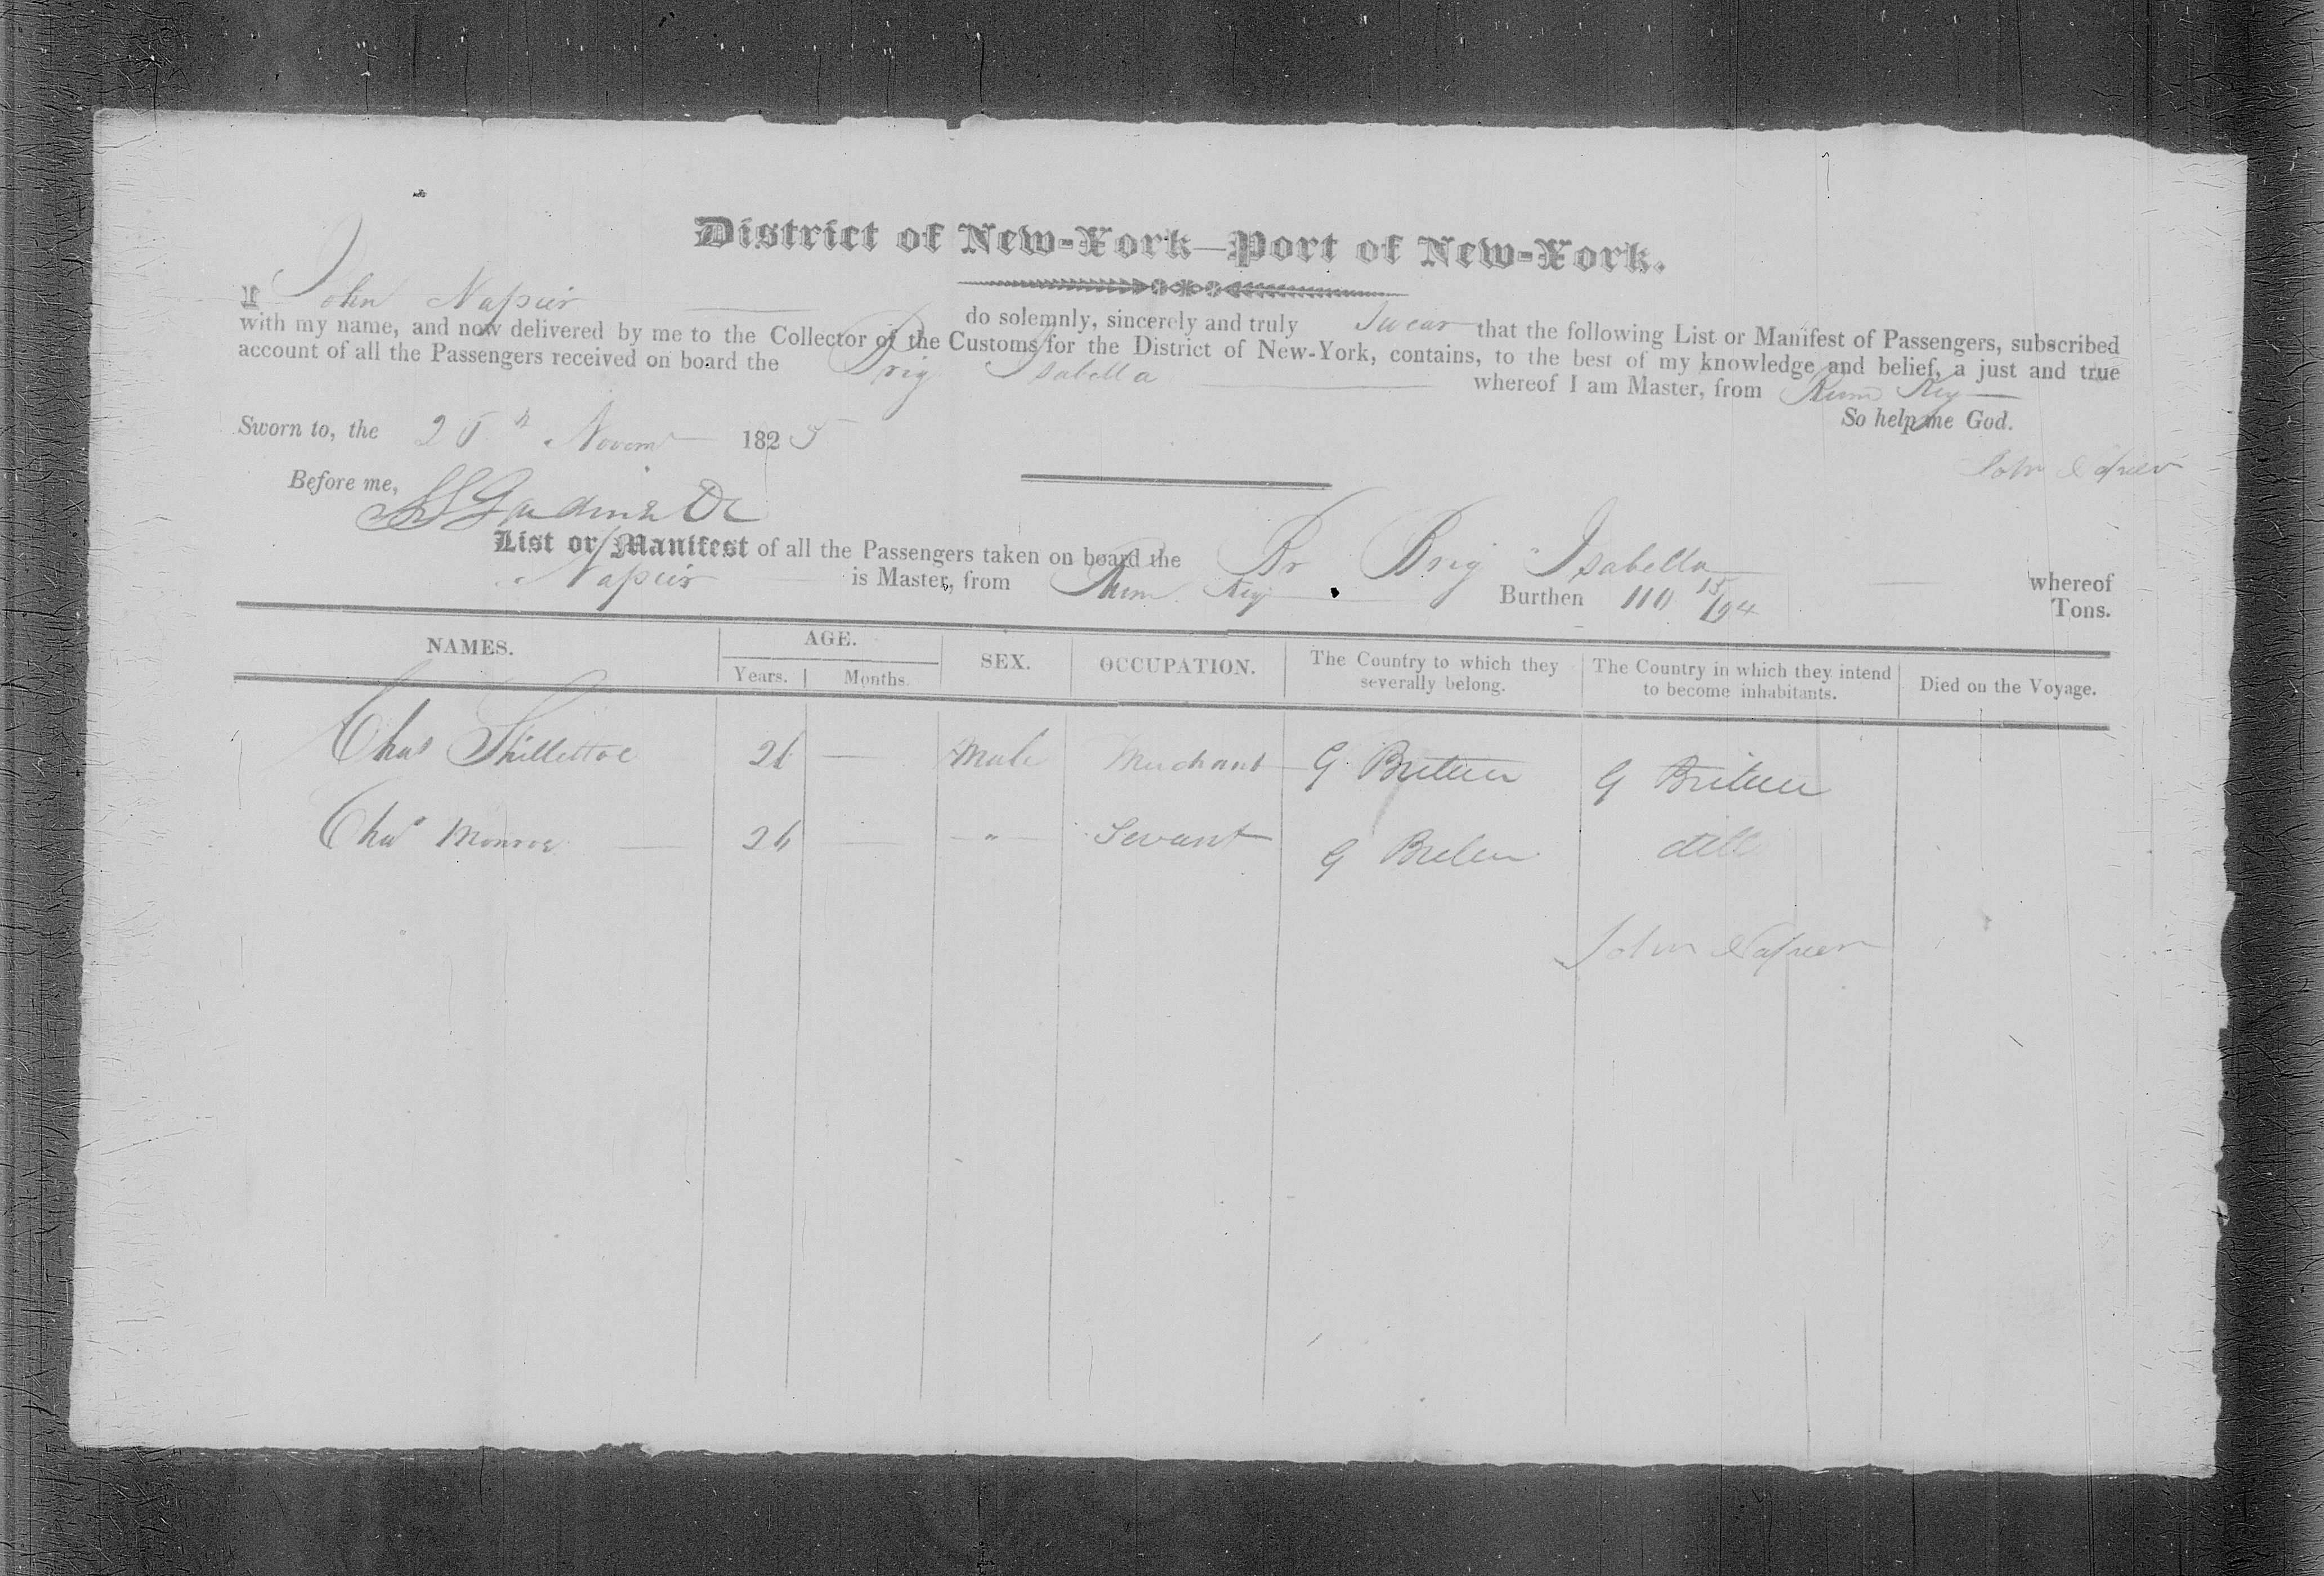 District of New-York—Port of New-York.
I John Napier do solemnly, sincerely and truly Swear that the following List or Manifest of Passengers, subscribed
with my name, and now delivered by me to the Collector of the Customs for the District of New-York, contains, to the best of my knowledge and belief, a just and true
account of all the Passengers received on board the Brig Isabella whereof I am Master, from Rum Key
So help me God.
Sworn to, the 25th Novem 1825
John Napier
Before me,
List or Manifest of all the Passengers taken on board the Br Brig Isabella whereof
Napier is Master, from Rum Key Burthen 110 Tons.
NAMES. AGE. SEX. OCCUPATION. The Country to which they severally belong. The Country in which they intend to become inhabitants. Died on the Voyage.
Years. Months.
Chas Male Merchant G Britain G Britain
Chas Monroe 26 — " Servant G Britain
John Napier